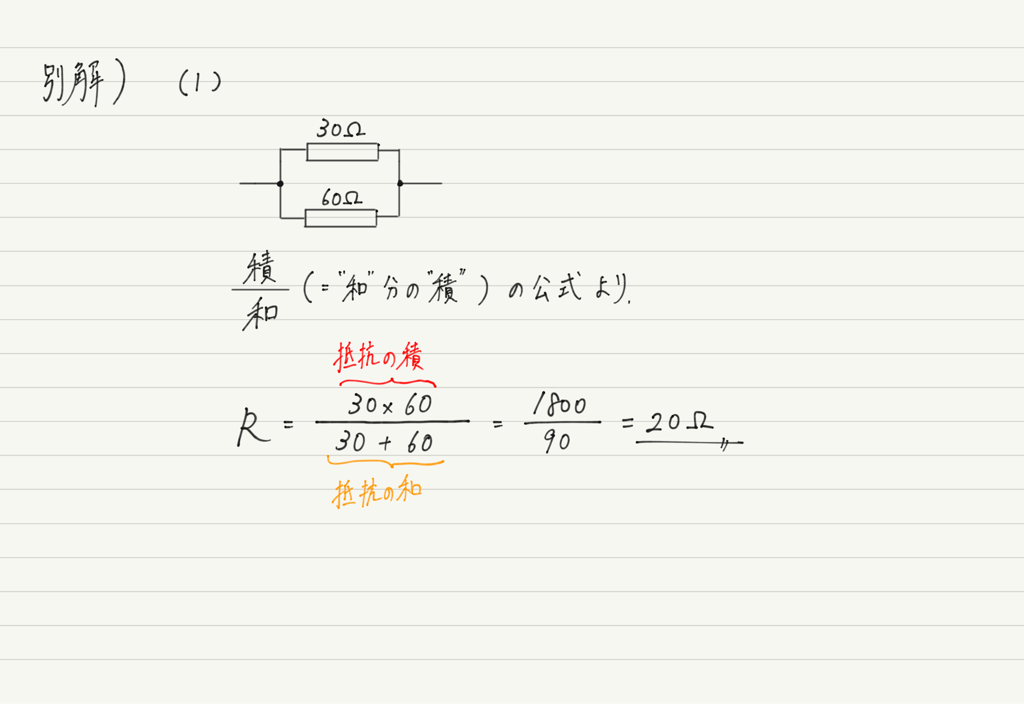 別解) (1)
30Ω
60Ω
積/和 (="和"分の"積") の公式より.
抵抗の積
R = (30×60)/(30+60) = 1800/90 = 20Ω
抵抗の和